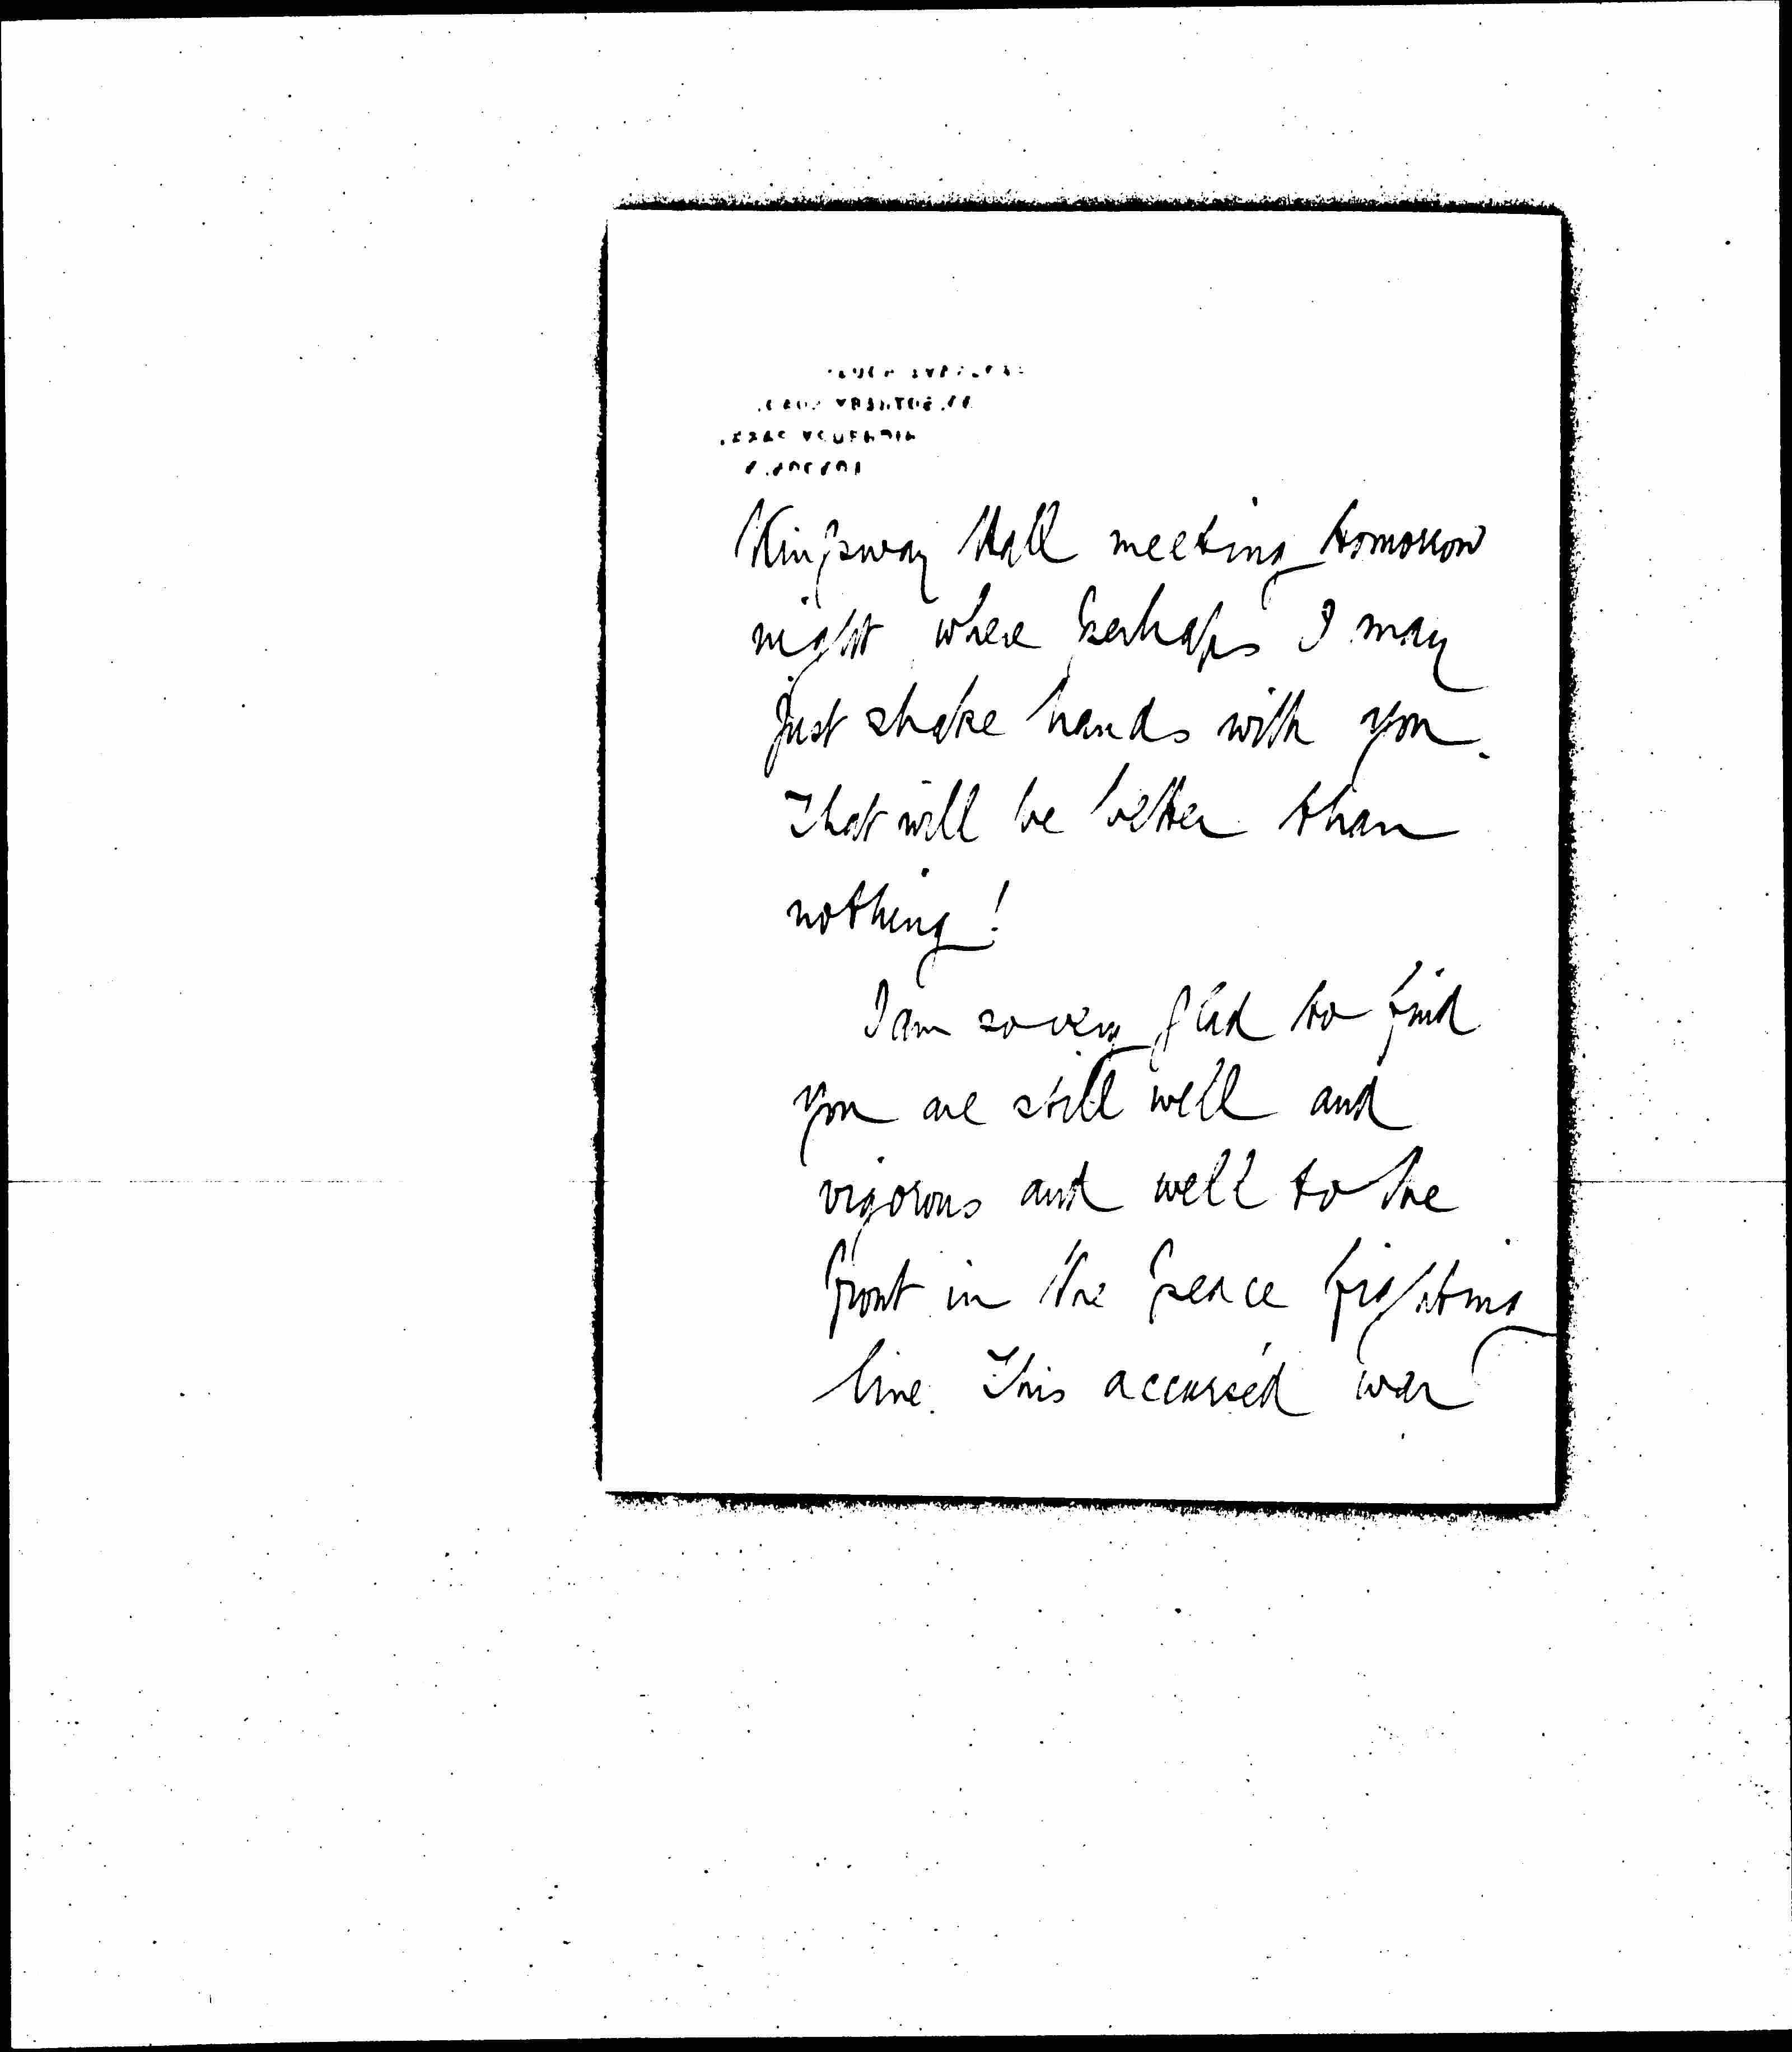 Kingsway Hall meeting tomorrow
night where perhaps I may
just shake hands with you.
That will be better than
nothing!
I am so very glad to find
you are still well and
vigorous and well to the
front in the peace fighting
line. This accursed war